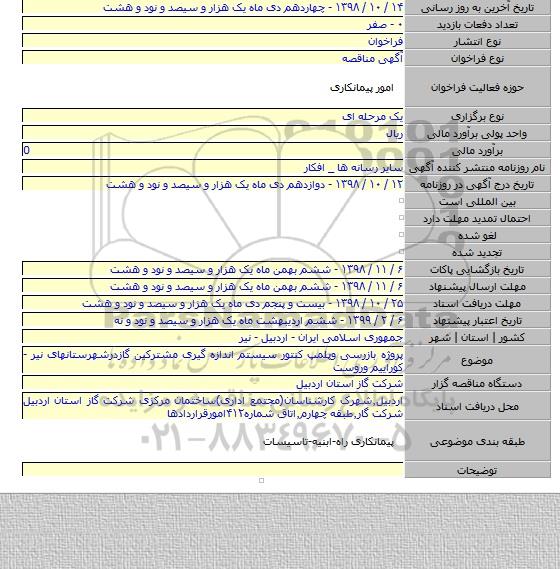 تاریخ آخرین به روز رسانی ۱۴ / ۱۰ / ۱۳۹۸ - چهاردهم دی ماه یک هزار و سیصد و نود و هشت
تعداد دفعات بازدید ۰ - صفر
نوع انتشار فراخوان
نوع فراخوان آگهی مناقصه
حوزه فعالیت فراخوان امور پیمانکاری
نوع برگزاری یک مرحله ای
واحد پولی برآورد مالی ریال
برآورد مالی 0
نام روزنامه منتشر کننده آگهی سایر رسانه ها _ افکار
تاریخ درج آگهی در روزنامه ۱۲ / ۱۰ / ۱۳۹۸ - دوازدهم دی ماه یک هزار و سیصد و نود و هشت
بین المللی است
احتمال تمدید مهلت دارد
لغو شده
تجدید شده
تاریخ بازگشایی پاکات ۶ / ۱۱ / ۱۳۹۸ - ششم بهمن ماه یک هزار و سیصد و نود و هشت
مهلت ارسال پیشنهاد ۶ / ۱۱ / ۱۳۹۸ - ششم بهمن ماه یک هزار و سیصد و نود و هشت
مهلت دریافت اسناد ۲۵ / ۱۰ / ۱۳۹۸ - بیست و پنجم دی ماه یک هزار و سیصد و نود و هشت
تاریخ اعتبار پیشنهاد ۶ / ۲ / ۱۳۹۹ - ششم اردیبهشت ماه یک هزار و سیصد و نود و نه
کشور | استان | شهر جمهوری اسلامی ایران - اردبیل - نیر
موضوع پروژه بازرسی وپلمپ کنتور سیستم اندازه گیری مشترکین گازدرشهرستانهای نیر - کوراییم وروست
دستگاه مناقصه گزار شرکت گاز استان اردبیل
محل دریافت اسناد اردبیل,شهرک کارشناسان(مجتمع اداری)ساختمان مرکزی شرکت گاز استان اردبیل شرکت گاز,طبقه چهارم,اتاق شماره۴۱۲امورقراردادها
طبقه بندی موضوعی پیمانکاری راه-ابنیه-تاسیسات
توضیحات
۰۲۱-۸۸۳۴۹۶۷۰-۵